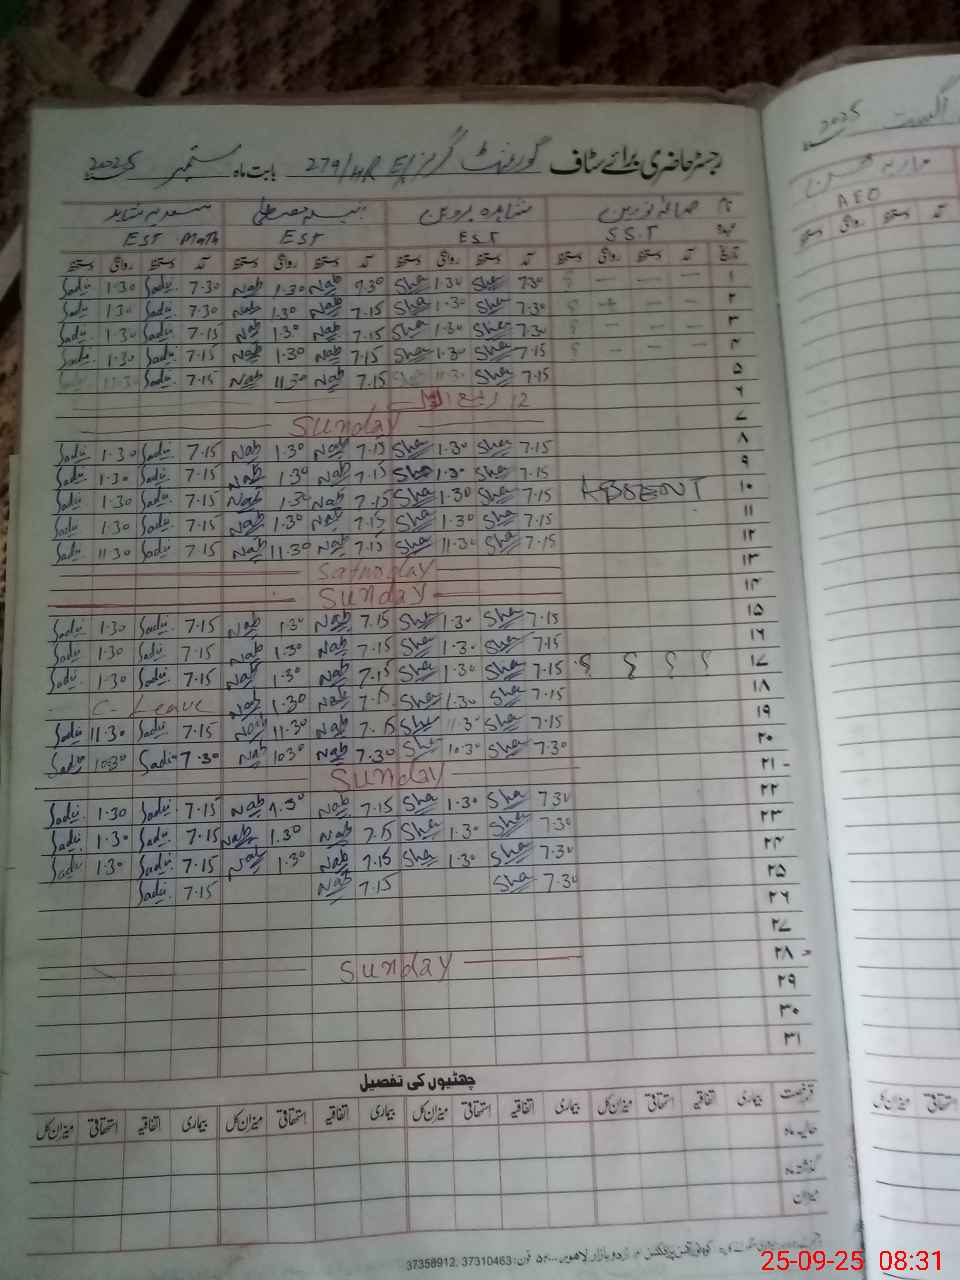 رجسٹر حاضری برائے سٹاف گورنمنٹ گرلز E/S 279/HR بابت ماہ ستمبر 2025
نام صائمہ نورین شاہدہ پروین سعدیہ شاہد
S.S.T EST EST EST Math
تاریخ آمد دستخط روانگی دستخط آمد دستخط روانگی دستخط آمد دستخط روانگی دستخط آمد دستخط روانگی دستخط
۱ – – – ؟ 7.30 Sha 1.30 Sha 7.30 Nab 1.30 Nab 7.30 Sadi 1.30 Sadi
۲ – – – ؟ 7.30 Sha 1.30 Sha 7.15 Nab 1.30 Nab 7.30 Sadi 1.30 Sadi
۳ – – – ؟ 7.30 Sha 1.30 Sha 7.15 Nab 1.30 Nab 7.15 Sadi 1.30 Sadi
۴ – – – ؟ 7.15 Sha 1.30 Sha 7.15 Nab 1.30 Nab 7.15 Sadi 1.30 Sadi
۵ 7.15 Sha 11.30 Sha 7.15 Nab 11.30 Nab 7.15 Sadi 11.30 Sadi
۶ 12 ربیع الاول
۷ Sunday
۸ 7.15 Sha 1.30 Sha 7.15 Nab 1.30 Nab 7.15 Sadi 1.30 Sadi
۹ 7.15 Sha 1.30 Sha 7.15 Nab 1.30 Nab 7.15 Sadi 1.30 Sadi
۱۰ ABSENT 7.15 Sha 1.30 Sha 7.15 Nab 1.30 Nab 7.15 Sadi 1.30 Sadi
۱۱ 7.15 Sha 1.30 Sha 7.15 Nab 1.30 Nab 7.15 Sadi 1.30 Sadi
۱۲ 7.15 Sha 11.30 Sha 7.15 Nab 11.30 Nab 7.15 Sadi 11.30 Sadi
۱۳ Saturday
۱۴ Sunday
۱۵ 7.15 Sha 1.30 Sha 7.15 Nab 1.30 Nab 7.15 Sadi 1.30 Sadi
۱۶ 7.15 Sha 1.30 Sha 7.15 Nab 1.30 Nab 7.15 Sadi 1.30 Sadi
۱۷ ؟ ؟ ؟ ؟ 7.15 Sha 1.30 Sha 7.15 Nab 1.30 Nab 7.15 Sadi 1.30 Sadi
۱۸ 7.15 Sha 1.30 Sha 7.15 Nab 1.30 Nab C. Leave
۱۹ 7.15 Sha 11.30 Sha 7.15 Nab 11.30 Nab 7.15 Sadi 11.30 Sadi
۲۰ 7.30 Sha 10.30 Sha 7.30 Nab 10.30 Nab 7.30 Sadi 10.30 Sadi
۲۱ Sunday
۲۲ 7.30 Sha 1.30 Sha 7.15 Nab 1.30 Nab 7.15 Sadi 1.30 Sadi
۲۳ 7.30 Sha 1.30 Sha 7.15 Nab 1.30 Nab 7.15 Sadi 1.30 Sadi
۲۴ 7.30 Sha 1.30 Sha 7.15 Nab 1.30 Nab 7.15 Sadi 1.30 Sadi
۲۵ 7.30 Sha 7.15 Nab 7.15 Sadi
۲۶
۲۷
۲۸ Sunday
۲۹
۳۰
۳۱
چھٹیوں کی تفصیل
قسم رخصت بیماری اتفاقیہ استحقاقی میزان کل بیماری اتفاقیہ استحقاقی میزان کل بیماری اتفاقیہ استحقاقی میزان کل بیماری اتفاقیہ استحقاقی میزان کل
حالیہ ماہ
گذشتہ ماہ
میزان
اردو بازار لاہور فون: 37310463, 37358912
اگست 2025
AEO
آمد دستخط روانگی دستخط
استحقاقی میزان کل
25-09-25 08:31